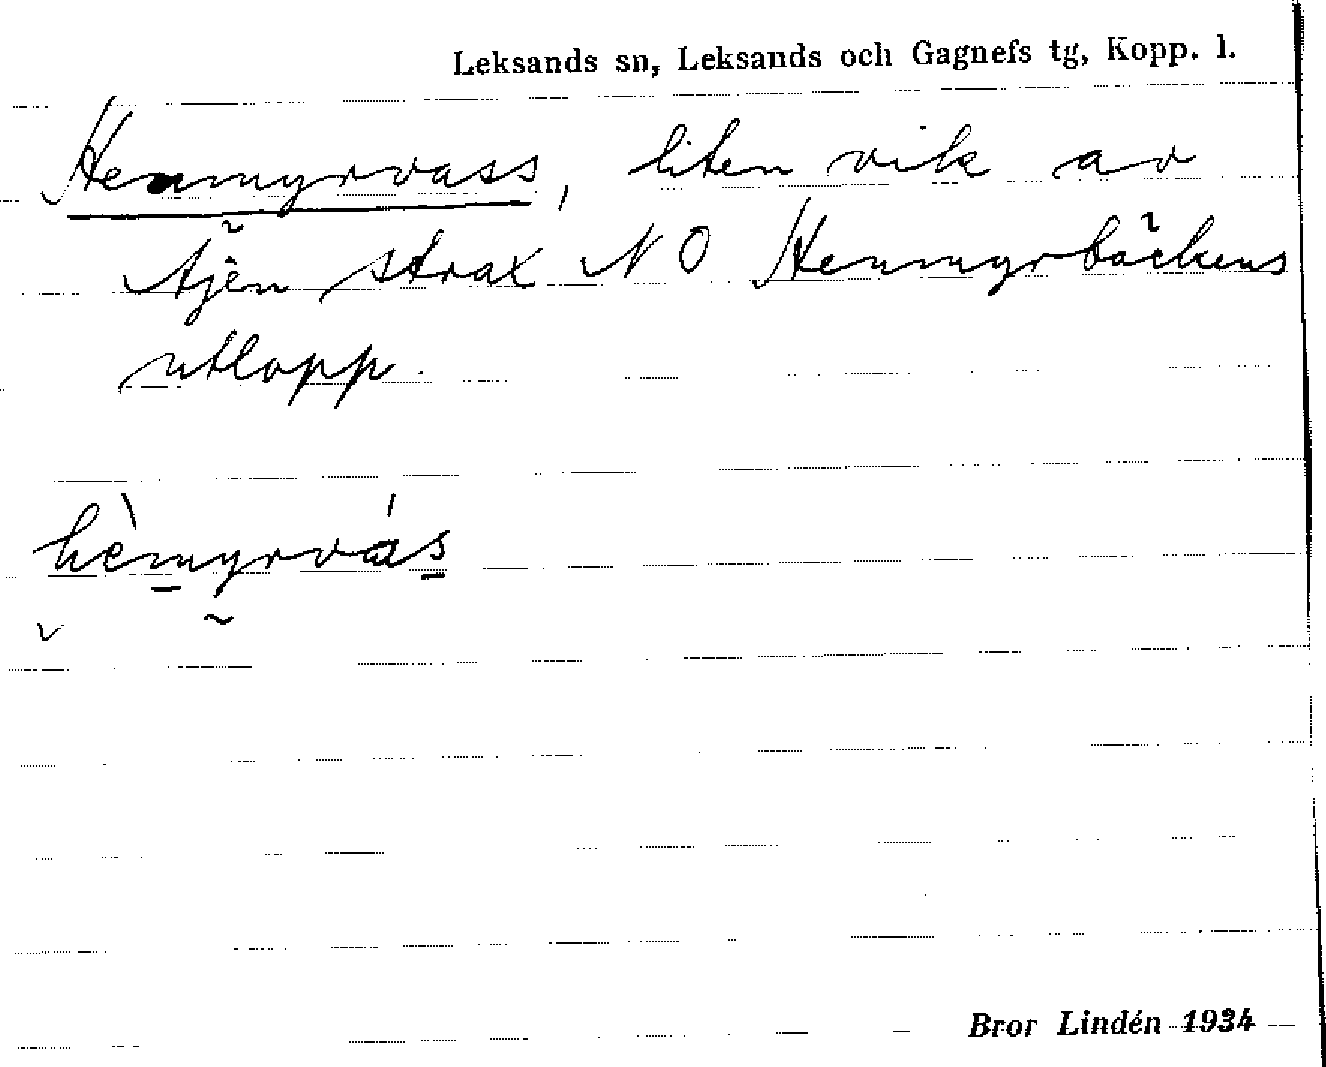 Leksands sn, Leksands och Gagnefs tg, Kopp. l.
Henmyrvass, liten vik av
Åjen strax NO Henmyrbäckens
utlopp.
hèmyrvás
Bror Lindén 1934